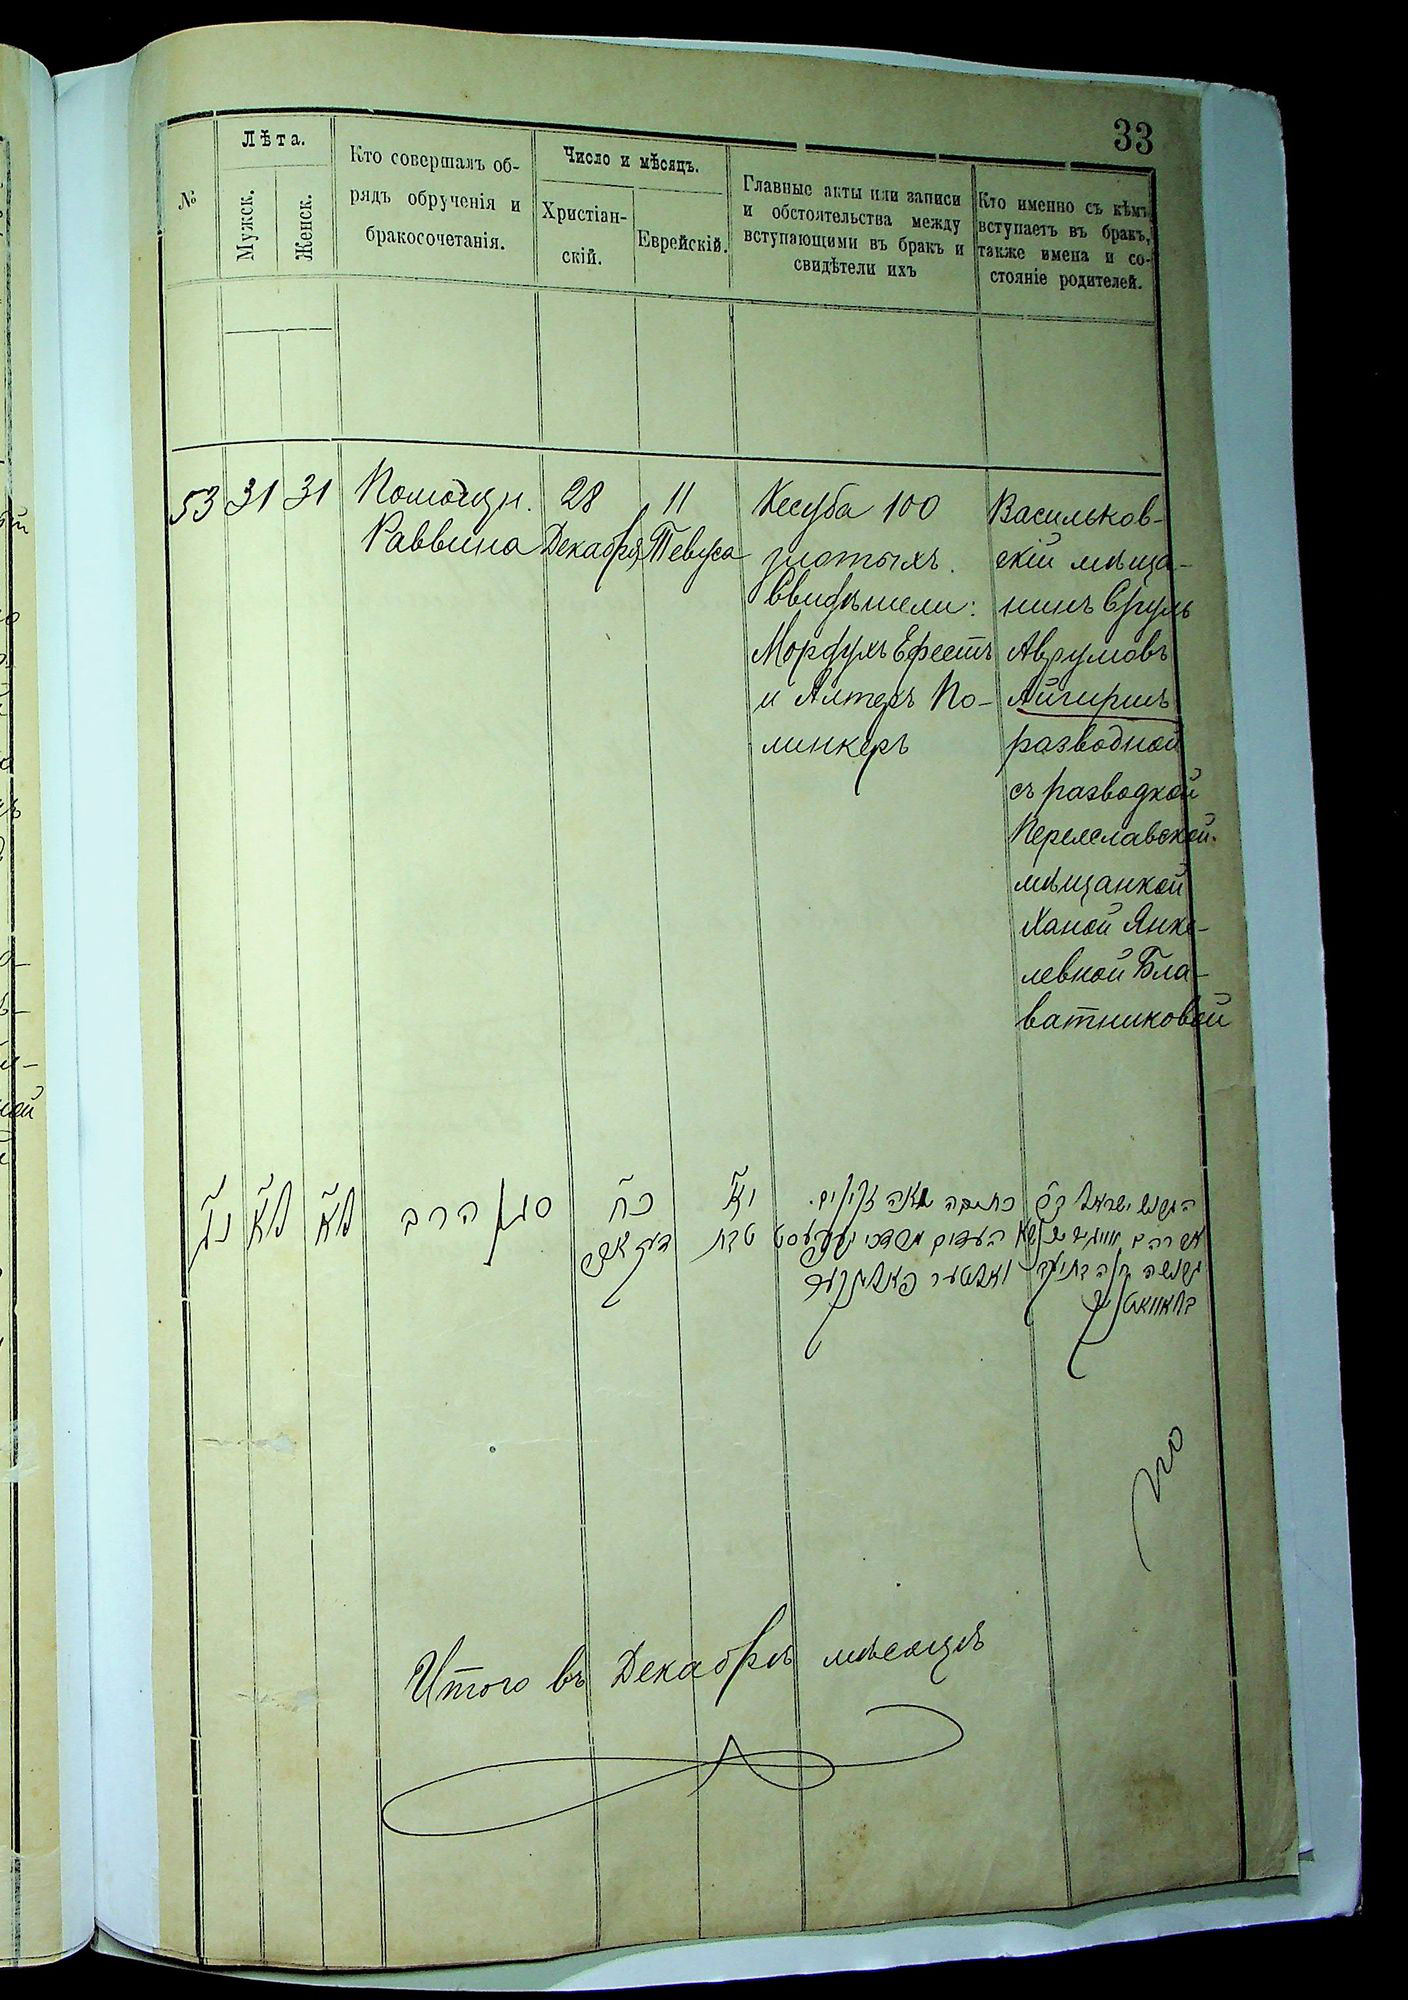 33
№
Лѣта.
Мужск.
Женск.
Кто совершалъ об-
рядъ обрученія и
бракосочетанія.
Число и мѣсяцъ.
Христіан-
скій.
Еврейскій.
Главные акты или записи
и обстоятельства между
вступающими въ бракъ и
свидѣтели ихъ
Кто именно съ кѣмъ
вступаетъ въ бракъ,
также имена и со-
стояніе родителей.
53
31
31
Помощн.
Раввина
28
Декабря
11
Тевуса
Кесуба 100
злотыхъ.
Свидѣтели:
Мордухъ
и Алтеръ По-
линкеръ
Васильков-
скій мѣща-
нинъ Сруль
Аврумовъ
Айгирнъ
разводной
съ разводкой
Переяславской
мѣщанкой
Ханой Янке-
левной Бла-
ватниковой
נג
לא
לא
סגן הרב
כח
יא
טבת
כתובה מאה זהובים.
העדים מרדכי
ואלטער פאלינקער
הגרוש ישראל
אברהם
גרושה חנה
Итого въ Декабрѣ мѣсяцѣ